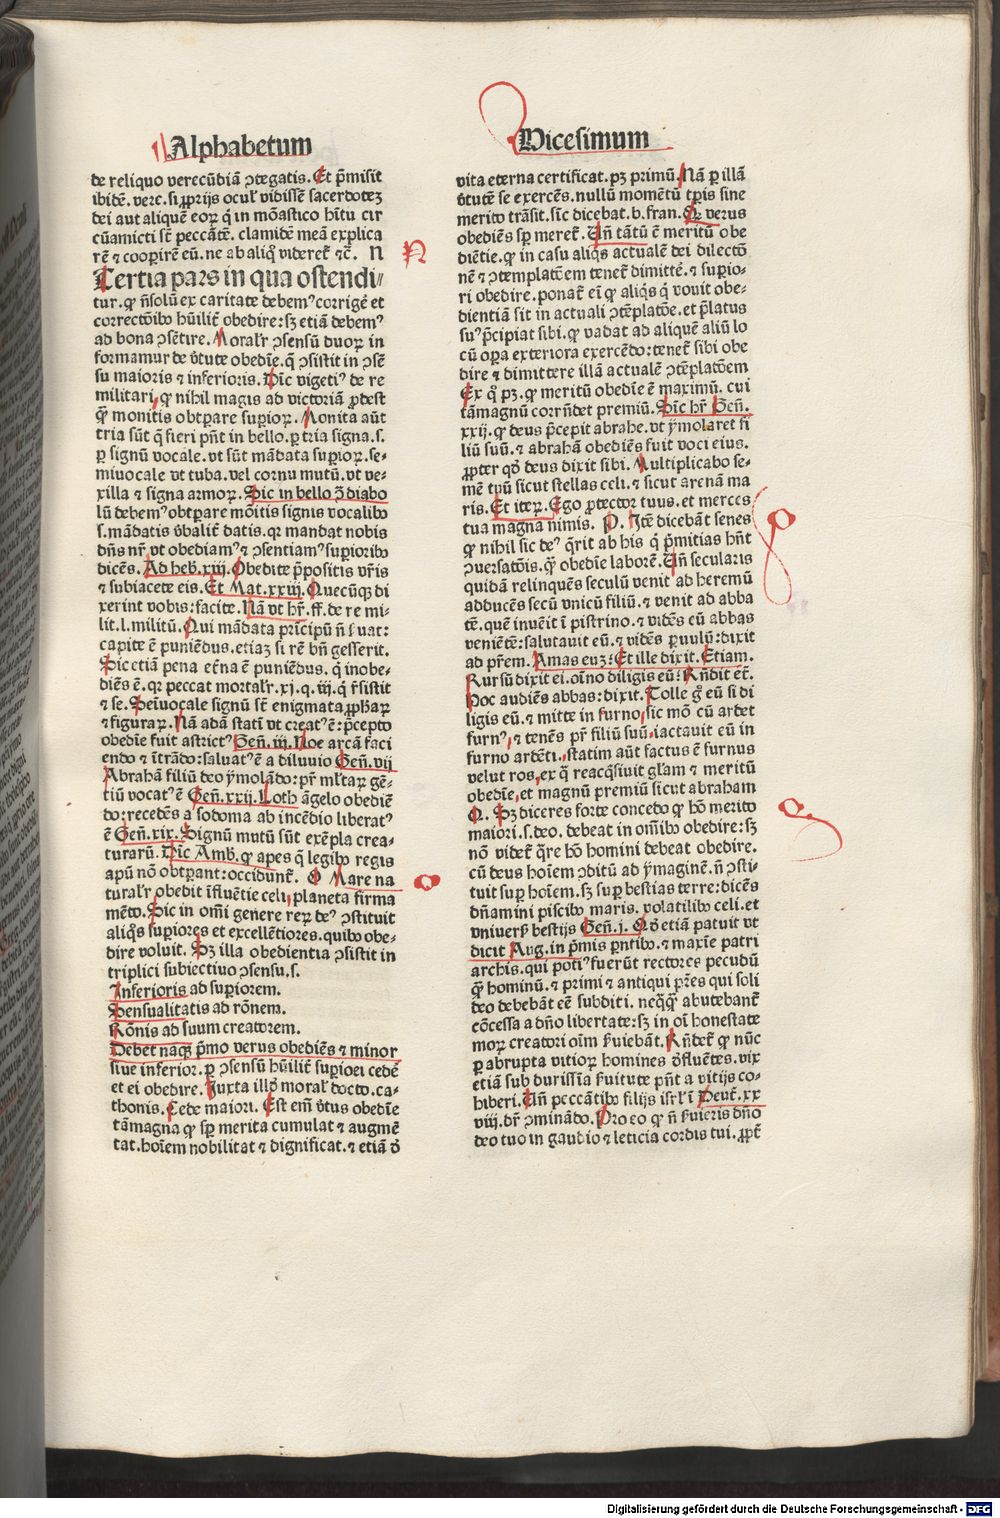 Alphabetum
de reliquo verecūdiā ꝓtegatis. Et p̄misit
ibidē. vere. si ꝓprijs ocul' vidissē sacerdotez
dei aut aliquē eoꝝ q̄ in mōastico hītu cir
cūamicti sīt peccātē. clamidē meā explica
rē ⁊ cooꝑirē eū. ne ab aliq̊ videret̄ ⁊c̄. N
Tertia pars in qua ostendi
tur. ꝙ n̄solū ex caritate debem⁹ corrigē et
correctōibꝰ hūilit̄ obedire: sꝫ etiā debem⁹
ad bona ꝯsētire. Moral'r ꝯsensū duoꝝ in
formamur de v̄tute obedīe. q̄ ꝯsistit in ꝯsē
su maioris ⁊ inferioris. Dic̄ vigeti⁹ de re
militari, ꝙ nihil magis ad victoriā ꝓdest
q̄ꝫ monitis obtꝑare suꝑioꝝ. Monita aūt
tria sūt q̄ fieri pn̄t in bello. ꝑ tria signa. s.
ꝑ signū vocale. vt sūt mādata suꝑioꝝ. se-
miuocale vt tuba. vel cornu mutū. vt ve-
xilla ⁊ signa armoꝝ. Sic in bello ꝯ̄ diabo
lū debem⁹ obtꝑare mōitis signis vocalibꝰ
s. mādatis v̄balit̄ datis. qꝛ mandat nobis
dn̄s nr̄. vt obediam⁹ ⁊ ꝯsentiam⁹ suꝑioribꝰ
dicēs. Ad heb̄. xiij. Obedite p̄positis vr̄is
⁊ subiacete eis. Et Mat. xxiij. Quecūqꝫ di
xerint vobis: facite. Nā vt hr̄. ff. de re mi-
lit. l. militū. Qui mādata prīcipū n̄ ẜuat:
capite ē puniēdus. etiaz si rē bn̄ gesserit.
Sic etiā pena et̄na ē puniēdus. q̄ inobe-
diēs ē. qꝛ peccat mortal'r. xj. q. iij. q̄ r̄sistit
⁊ se. Semiuocale signū sīt enigmata ꝓph̄aꝝ
⁊ figuraꝝ. Nā adā stati vt creat⁹ ē: p̄cepto
obedīe fuit astrict⁹ Gen̄. iij. Noe arcā faci
endo ⁊ ītrādo: saluat⁹ ē a diluuio Gen̄. vij
Abrahā filiū deo ȳmolādo: pr̄ ml'taꝝ gē-
tiū vocat⁹ ē Gen̄. xxij. Loth āgelo obediē
do: recedēs a sodoma ab incēdio liberat⁹
ē Gen̄. xix. Signū mutū sūt exēpla crea-
turarū. Dic̄ Amb̄. ꝙ apes q̄ legibꝰ regis
apū nō obtꝑant: occidunt̄. O Mare na
tural'r obedit īfluētie celi, planeta firma
mēto. Sic in om̄i genere reꝝ de⁹ ꝯstituit
aliq̊s suꝑiores et excellētiores. quibꝰ obe-
dire voluit. Sꝫ illa obedientia ꝯsistit in
triplici subiectiuo ꝯsensu. s.
Inferioris ad suꝑiorem.
Sensualitatis ad rōnem.
Rōnis ad suum creatorem.
Debet naqꝫ p̄mo verus obediēs ⁊ minor
siue inferior. ꝑ ꝯsensū hūilit̄ suꝑioei cedē
et ei obedire. Juxta illō moral' docto. ca-
thonis. Cede maiori. Est em̄ v̄tus obedīe
tāmagna ꝙ sꝑ merita cumulat ⁊ augmē
tat. hoīem nobilitat ⁊ dignificat. ⁊ etiā d̄
Vicesimum
vita eterna certificat. pꝫ primū. Nā ꝑ illā
v̄tutē se exercēs. nullū momētū tp̄is sine
merito trāsit. sic dicebat. b. fran. Qꝛ verus
obediēs sꝑ meret̄. Vn̄ tātū ē meritū obe
diētie. ꝙ in casu aliq̊s actualē dei dilectō
nē ⁊ ꝯtemplatōem tenet̄ dimittē. ⁊ suꝑio-
ri obedire. ponat̄ eī ꝙ aliq̊s q̄ vouit obe-
dientiā sit in actuali ꝯtēplatōe. et p̄latus
su⁹ p̄cipiat sibi. ꝙ vadat ad aliquē aliū lo
cū oꝑa exteriora exercēdo: tenet̄ sibi obe
dire ⁊ dimittere illā actualē ꝯtēplatōem
Ex q̊ pꝫ. ꝙ meritū obedīe ē maximū. cui
tāmagnū corrn̄det premiū. Sic hr̄ Gen̄.
xxij. ꝙ deus p̄cepit abrahe. vt ȳmolaret fi
liū suū. ⁊ abrahā obediēs fuit voci eius.
ꝓpter qd̄ deus dixit sibi. Multiplicabo se-
mē tuū sicut stellas celi. ⁊ sicut arenā ma
ris. Et iteꝝ. Ego ꝓtector tuus. et merces
tua magna nimis. P. Itē dicebāt senes
ꝙ nihil sic de⁹ q̄rit ab his q̄ p̄mitias hn̄t
ꝯuersatōis. q̄ꝫ obedīe laborē. Vn̄ secularis
quidā relinquēs seculū venit ad heremū
adducēs secū vnicū filiū. ⁊ venit ad abba
tē. quē inuēit ī pistrino. ⁊ vidēs eū abbas
veniētē: salutauit eū. ⁊ vidēs ꝑuulū: dixit
ad pr̄em. Amas euꝫ: Et ille dixit. Etiam.
Rursū dixit ei. oīno diligis eū: Rn̄dit et̄.
Hoc audiēs abbas: dixit. Tolle gͦ eū si di
ligis eū. ⁊ mitte in furno, sic mō cū ardet
furn⁹. ⁊ tenēs pr̄ filiū suū, iactauit eū in
furno ardēti. statim aūt factus ē furnus
velut ros, ex q̄ reacq̄siuit gl'am ⁊ meritū
obedīe, et magnū premiū sicut abraham
Q. Sꝫ diceres forte concedo ꝙ hō merito
maiori. s. deo. debeat in om̄ibꝰ obedire: sꝫ
nō videt̄ q̄re hō homini debeat obedire.
cū deus hoīem ꝯditū ad ȳmaginē. n̄ ꝯsti-
tuit suꝑ hoīem. sꝫ suꝑ bestias terre: dicēs
dn̄amini piscibꝰ maris. volatilibꝰ celi. et
vniuerẜ bestijs Gen̄. j. Qd̄ etiā patuit vt
dicit Aug. in p̄mis ꝑntibꝰ. ⁊ maxīe patri
archis. qui poti⁹ fuerūt rectores pecudū
q̄ꝫ hominū. ⁊ primi ⁊ antiqui pr̄es qui soli
deo debebāt eē subditi. neq̄q̄ꝫ abutebant̄
cōcessa a dn̄o libertate: sꝫ in oī honestate
moꝝ creatori oīm ẜuiebāt. Rn̄det̄ ꝙ nūc
ꝑ abrupta vitioꝝ homines d̄fluētes. vix
etiā sub durissīa ẜuitute pn̄t a vitijs co-
hiberi. Vn̄ peccātibꝰ filijs isrl' ī Deut̄. xx
viij. dr̄ ꝯminādo. Pro eo ꝙ n̄ ẜuieris dn̄o
deo tuo in gaudio ⁊ leticia cordis tui. ꝓpt̄
N
P
O
Q
Digitalisierung gefördert durch die Deutsche Forschungsgemeinschaft - DFG